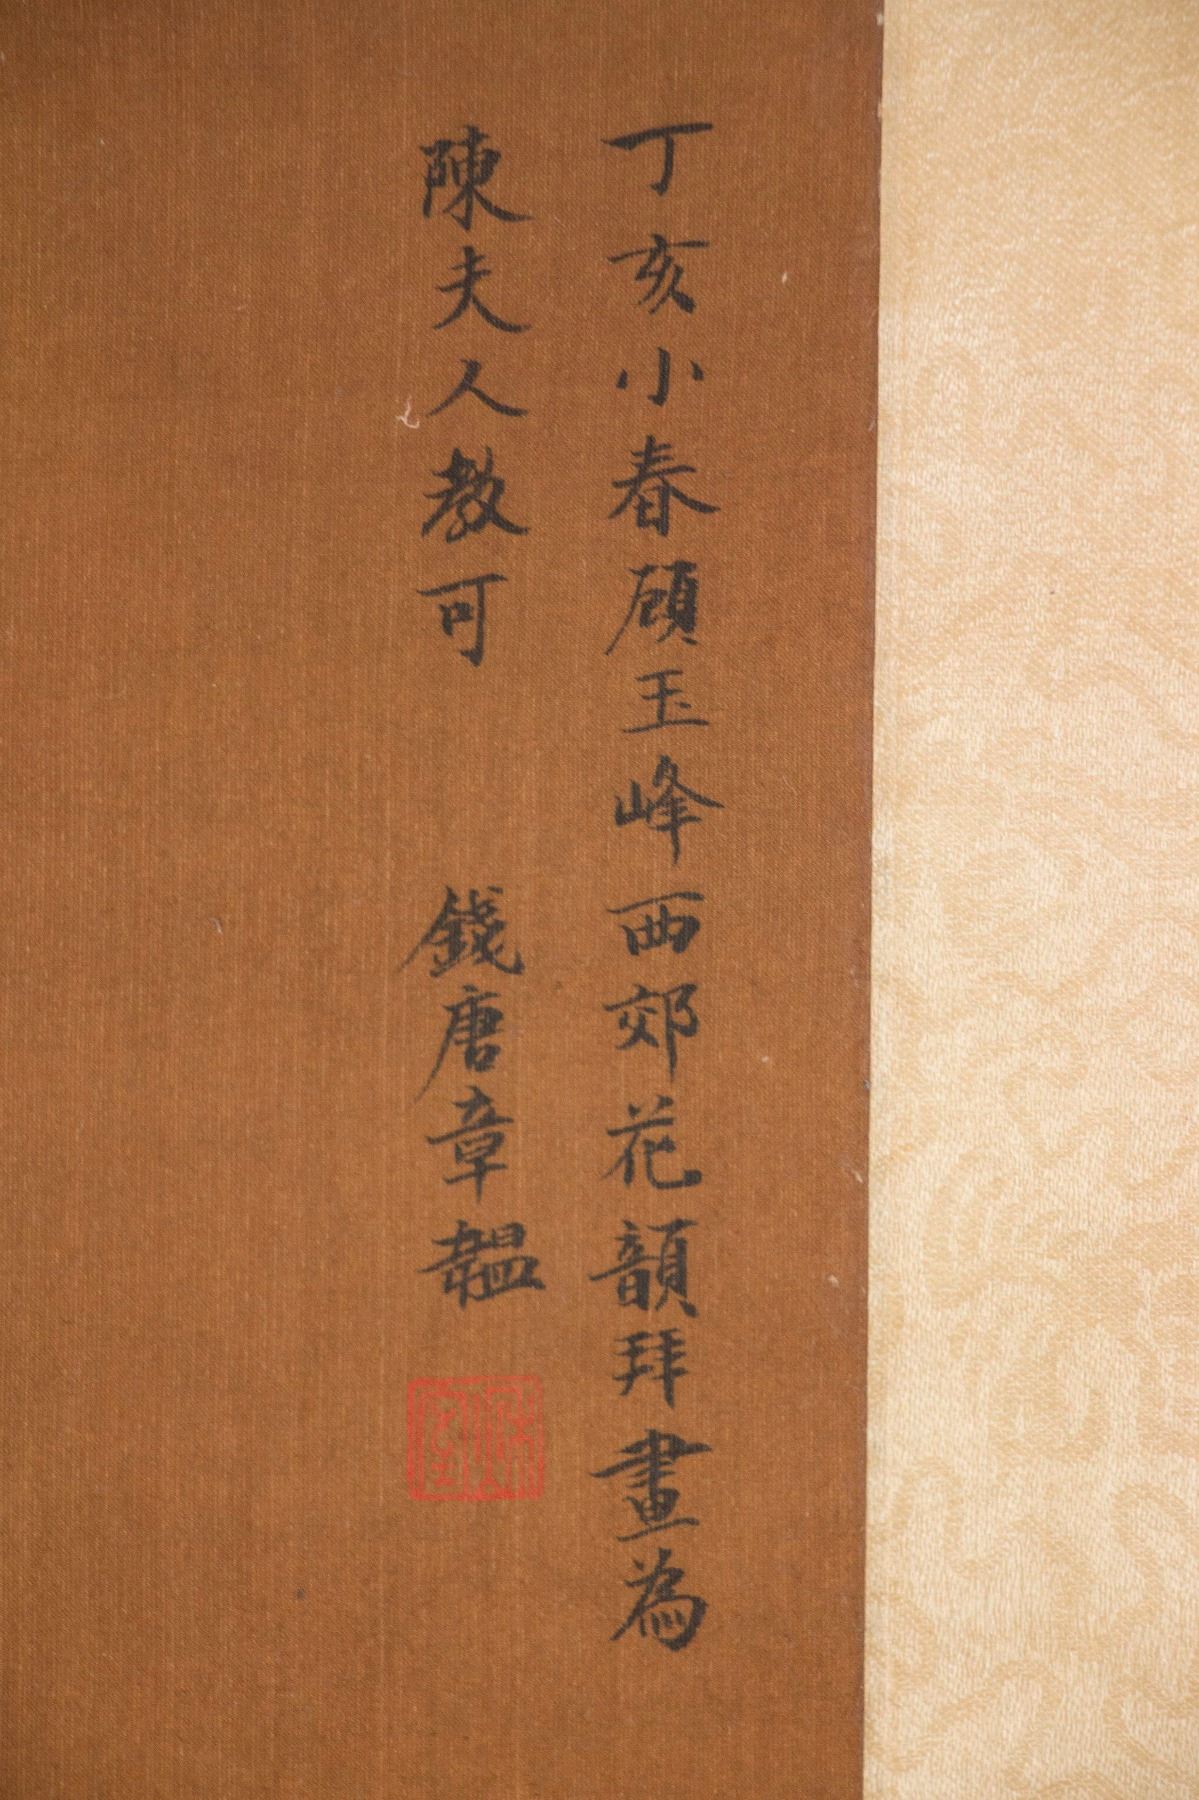 丁亥小春顧玉峰西郊花韻拜畫為
陳夫人教可 錢唐章韞